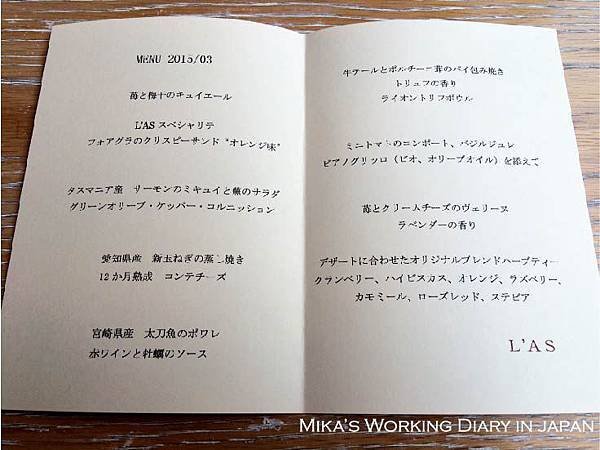 MENU 2015/03
苺と梅干のキュイエール
L'AS スペシャリテ
フォアグラのクリスピーサンド "オレンジ味"
タスマニア産 サーモンのミキュイと蕪のサラダ
グリーンオリーブ・ケッパー・コルニッション
愛知県産 新玉ねぎの蒸し焼き
12か月熟成 コンテチーズ
宮崎県産 太刀魚のポワレ
赤ワインと牡蠣のソース
牛テールとポルチーニ茸のパイ包み焼き
トリュフの香り
ライオントリフボウル
ミニトマトのコンポート、バジルジュレ
ピアノグリッロ(ビオ、オリーブオイル)を添えて
苺とクリームチーズのヴェリーヌ
ラベンダーの香り
デザートに合わせたオリジナルブレンドハーブティー
クランベリー、ハイビスカス、オレンジ、ラズベリー、
カモミール、ローズレッド、ステビア
L'AS
MIKA'S WORKING DIARY IN JAPAN